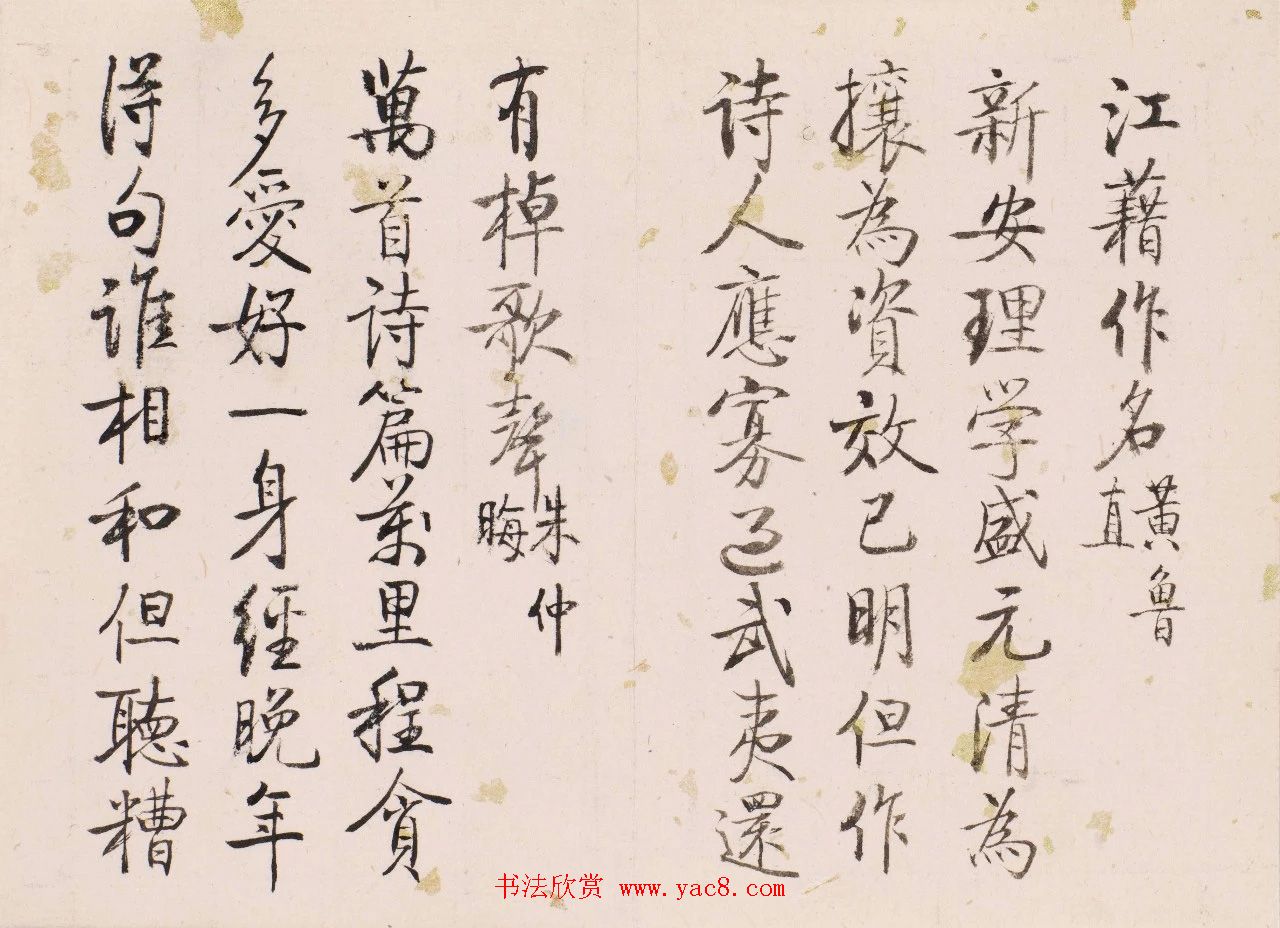 江藉作名黃魯直
新安理学盛元清為
攘為資效已明但作
诗人應寡過武夷還
有棹歌聲朱仲晦
萬首诗篇萬里程貪
多愛好一身經晚年
得句谁相和但聽糟
书法欣赏 www.yac8.com